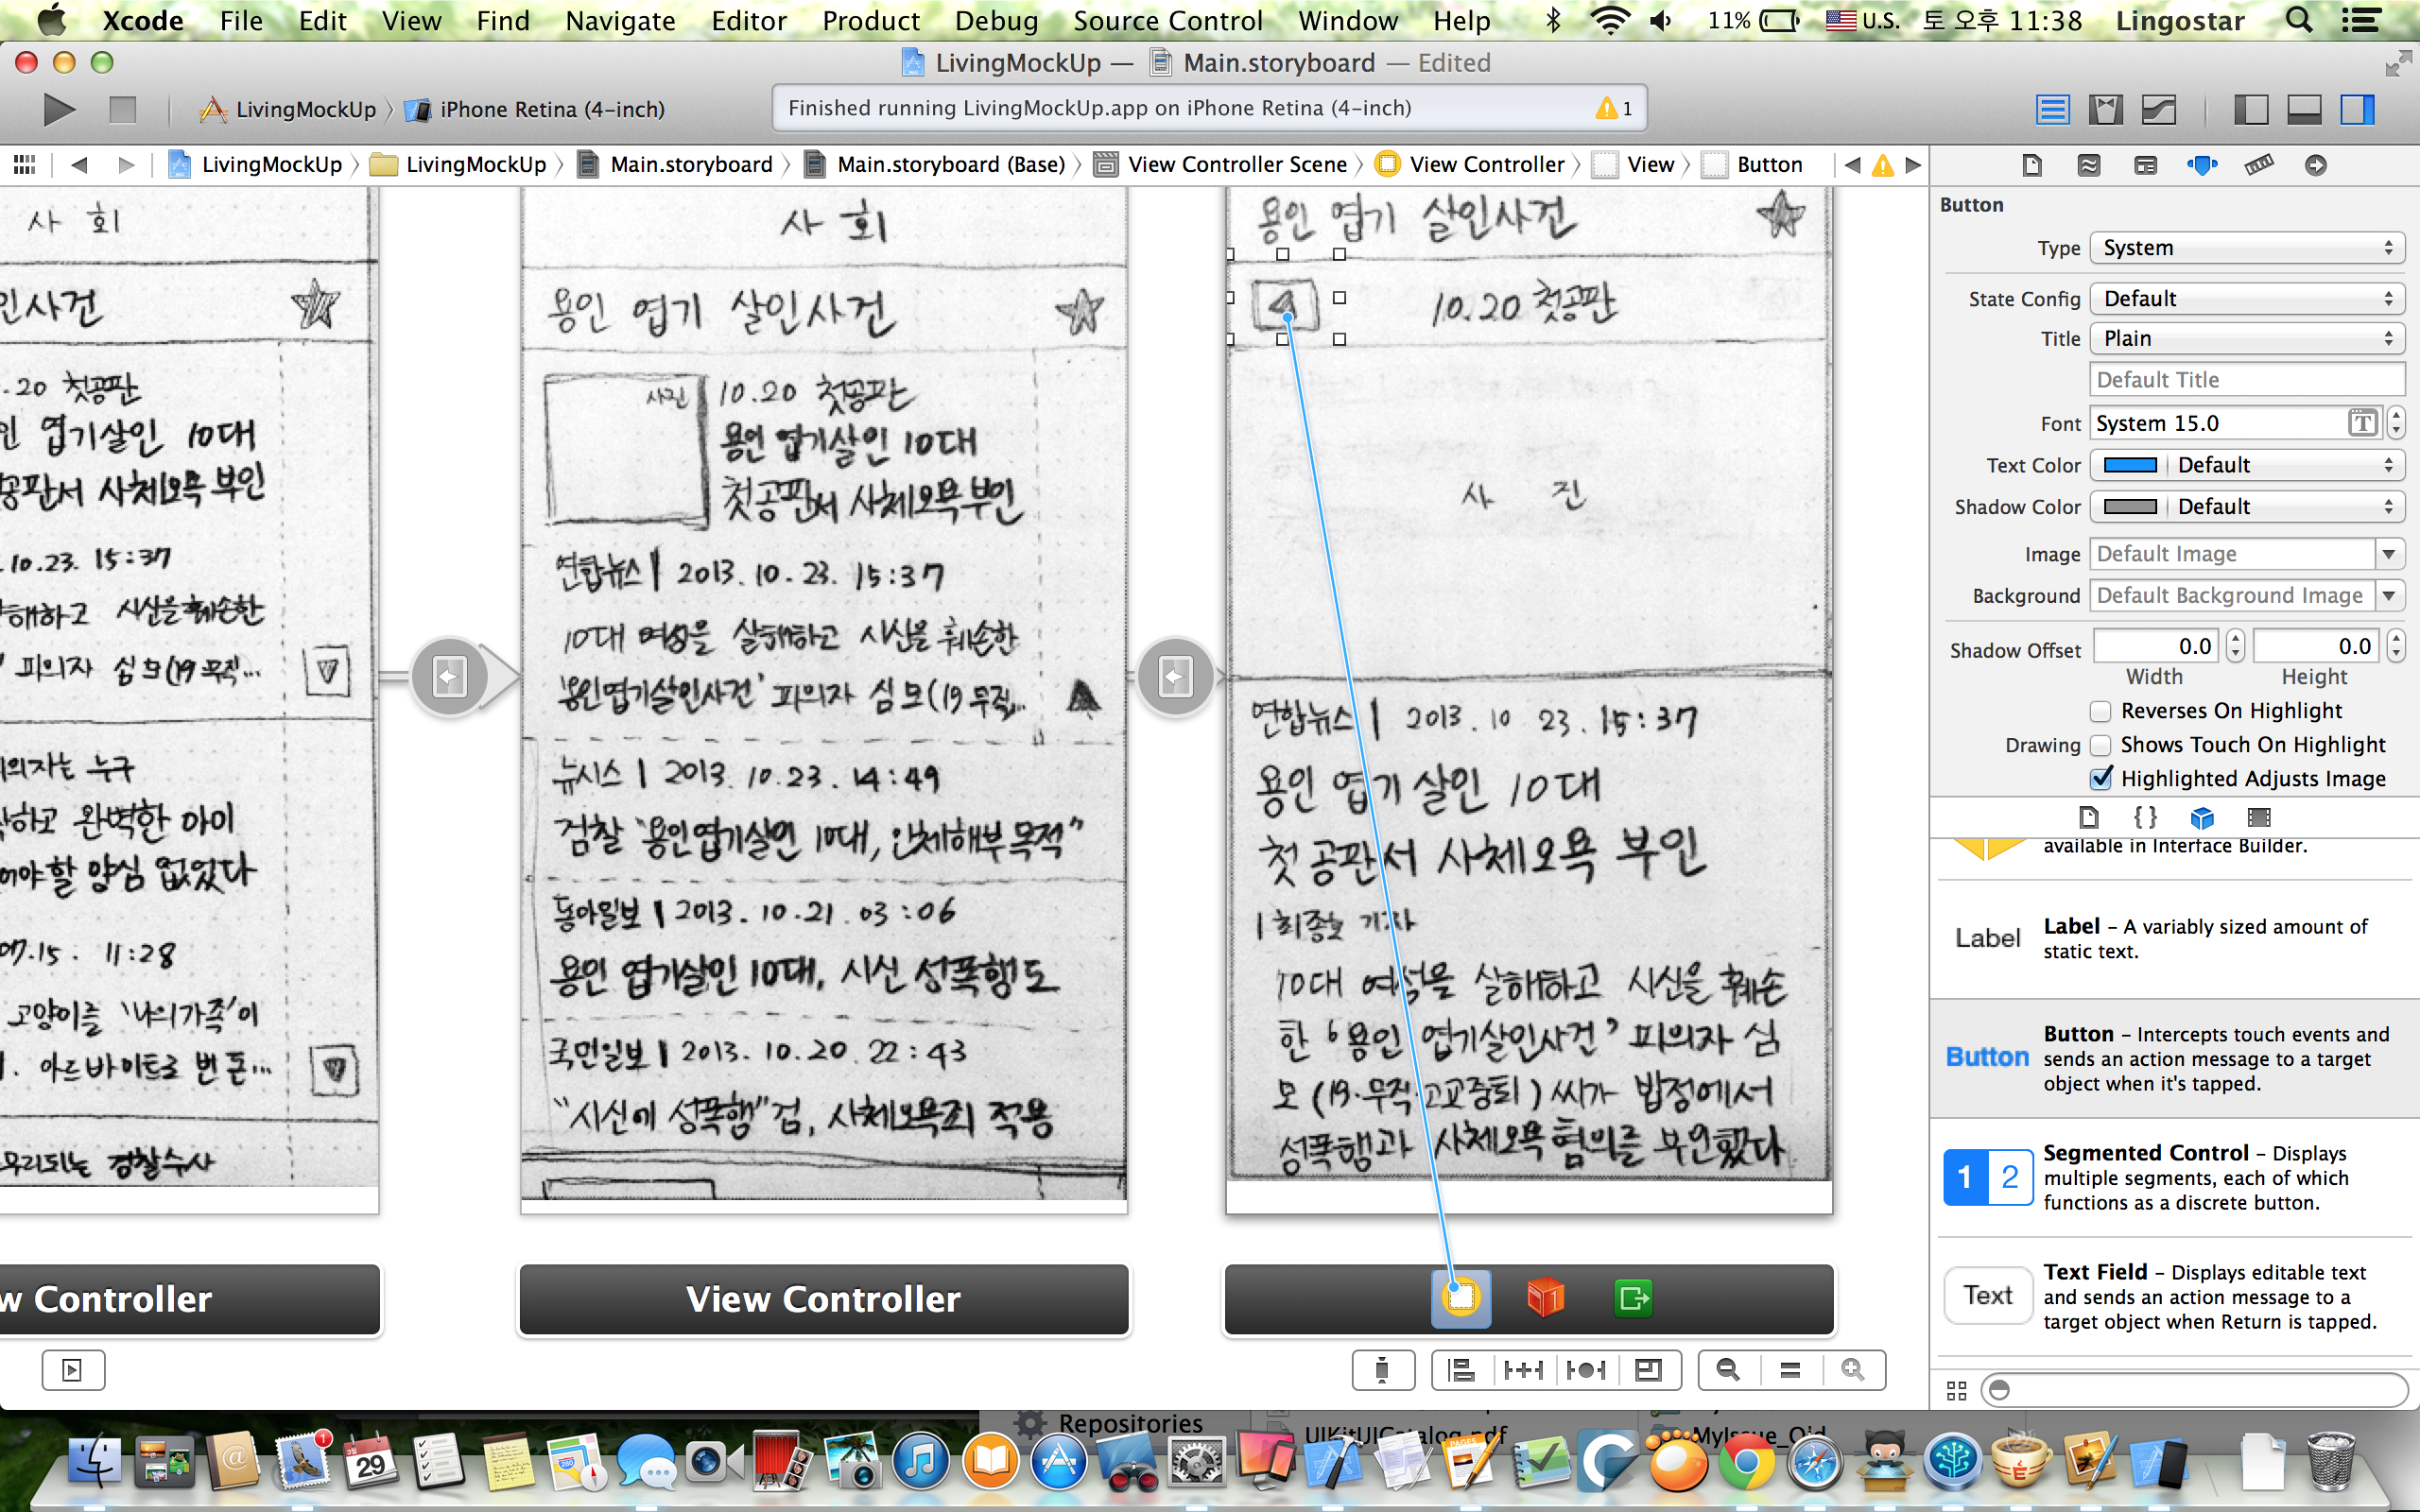 Xcode File Edit View Find Navigate Editor Product Debug Source Control Window Help 11% U.S. 토 오후 11:38 Lingostar
LivingMockUp — Main.storyboard — Edited
LivingMockUp iPhone Retina (4-inch)
Finished running LivingMockUp.app on iPhone Retina (4-inch) 1
LivingMockUp LivingMockUp Main.storyboard Main.storyboard (Base) View Controller Scene View Controller View Button
사 회
인사건
.20 첫공판
인 엽기살인 10대
공판서 사체오욕 부인
.10.23. 15:37
해하고 시신을 훼손한
' 피의자 심모(19 무직...
의자는 누구
하고 완벽한 아이
어야할 양심 없었다
07.15. 11:28
고양이를 '나의가족'이
. 아르바이트로 번 돈...
무리되는 경찰수사
w Controller
사 회
용인 엽기 살인사건
사진
10.20 첫공판
용인 엽기살인 10대
첫공판서 사체오욕부인
연합뉴스 | 2013.10.23. 15:37
10대 여성을 살해하고 시신을 훼손한
'용인엽기살인사건' 피의자 심모(19 무직...
뉴시스 | 2013.10.23. 14:49
검찰 "용인엽기살인 10대, 인체해부 목적"
동아일보 | 2013.10.21.03:06
용인 엽기살인 10대, 시신 성폭행도
국민일보 | 2013.10.20.22:43
"시신에 성폭행" 검, 사체오욕죄 적용
View Controller
용인 엽기 살인사건
10.20 첫공판
사 진
연합뉴스 | 2013.10 23.15:37
용인 엽기 살인 10대
첫 공판서 사체오욕 부인
| 최종호 기자
10대 여성을 살해하고 시신을 훼손
한 '용인 엽기살인사건' 피의자 심
모(19·무직·고교중퇴)씨가 법정에서
성폭행과 사체오욕 혐의를 부인했다.
1
Button
Type System
State Config Default
Title Plain
Default Title
Font System 15.0 T
Text Color Default
Shadow Color Default
Image Default Image
Background Default Background Image
Shadow Offset 0.0 0.0
Width Height
Reverses On Highlight
Drawing Shows Touch On Highlight
Highlighted Adjusts Image
{ }
available in Interface Builder.
Label
Label – A variably sized amount of
static text.
Button
Button – Intercepts touch events and
sends an action message to a target
object when it's tapped.
1 2
Segmented Control – Displays
multiple segments, each of which
functions as a discrete button.
Text
Text Field – Displays editable text
and sends an action message to a
target object when Return is tapped.
Repositories
UIKitUICatalog.pdf
MyIssue_Old
1
29
PAGES